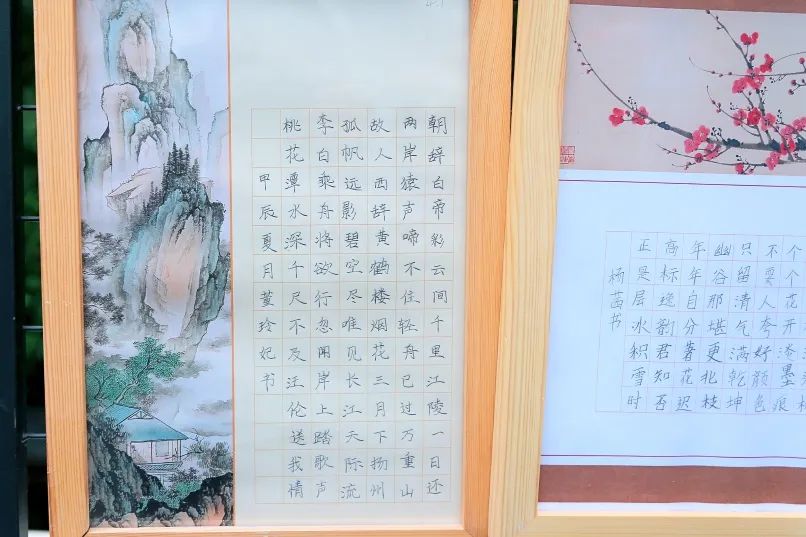 朝辞白帝彩云间千里江陵一日还
两岸猿声啼不住轻舟已过万重山
故人西辞黄鹤楼烟花三月下扬州
孤帆远影碧空尽唯见长江天际流
李白乘舟将欲行忽闻岸上踏歌声
桃花潭水深千尺不及汪伦送我情
甲辰夏月董玲妃书
个个花开淡墨痕
不要人夸好颜色
只留清气满乾坤
幽谷那堪更北枝
年年自分著花迟
高标逸韵君知否
正是层冰积雪时
杨书